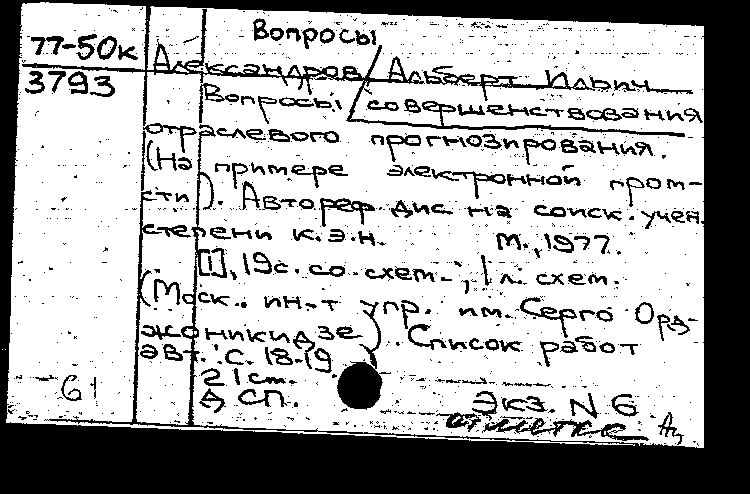 Вопросы
77-50к
3793
Александров Альберт Ильич
Вопросы совершенствования
отраслевого прогнозирования.
(На примере электронной пром-
сти). Автореф. дис. на соиск. учен.
степени к.э.н. М., 1977.
[1], 19 с. со схем.; 1 л. схем.
(Моск. ин-т упр. им. Серго Орд-
жоникидзе). Список работ
авт. С. 18-19
21 ст.
ДСП.
61
Экз. N 6